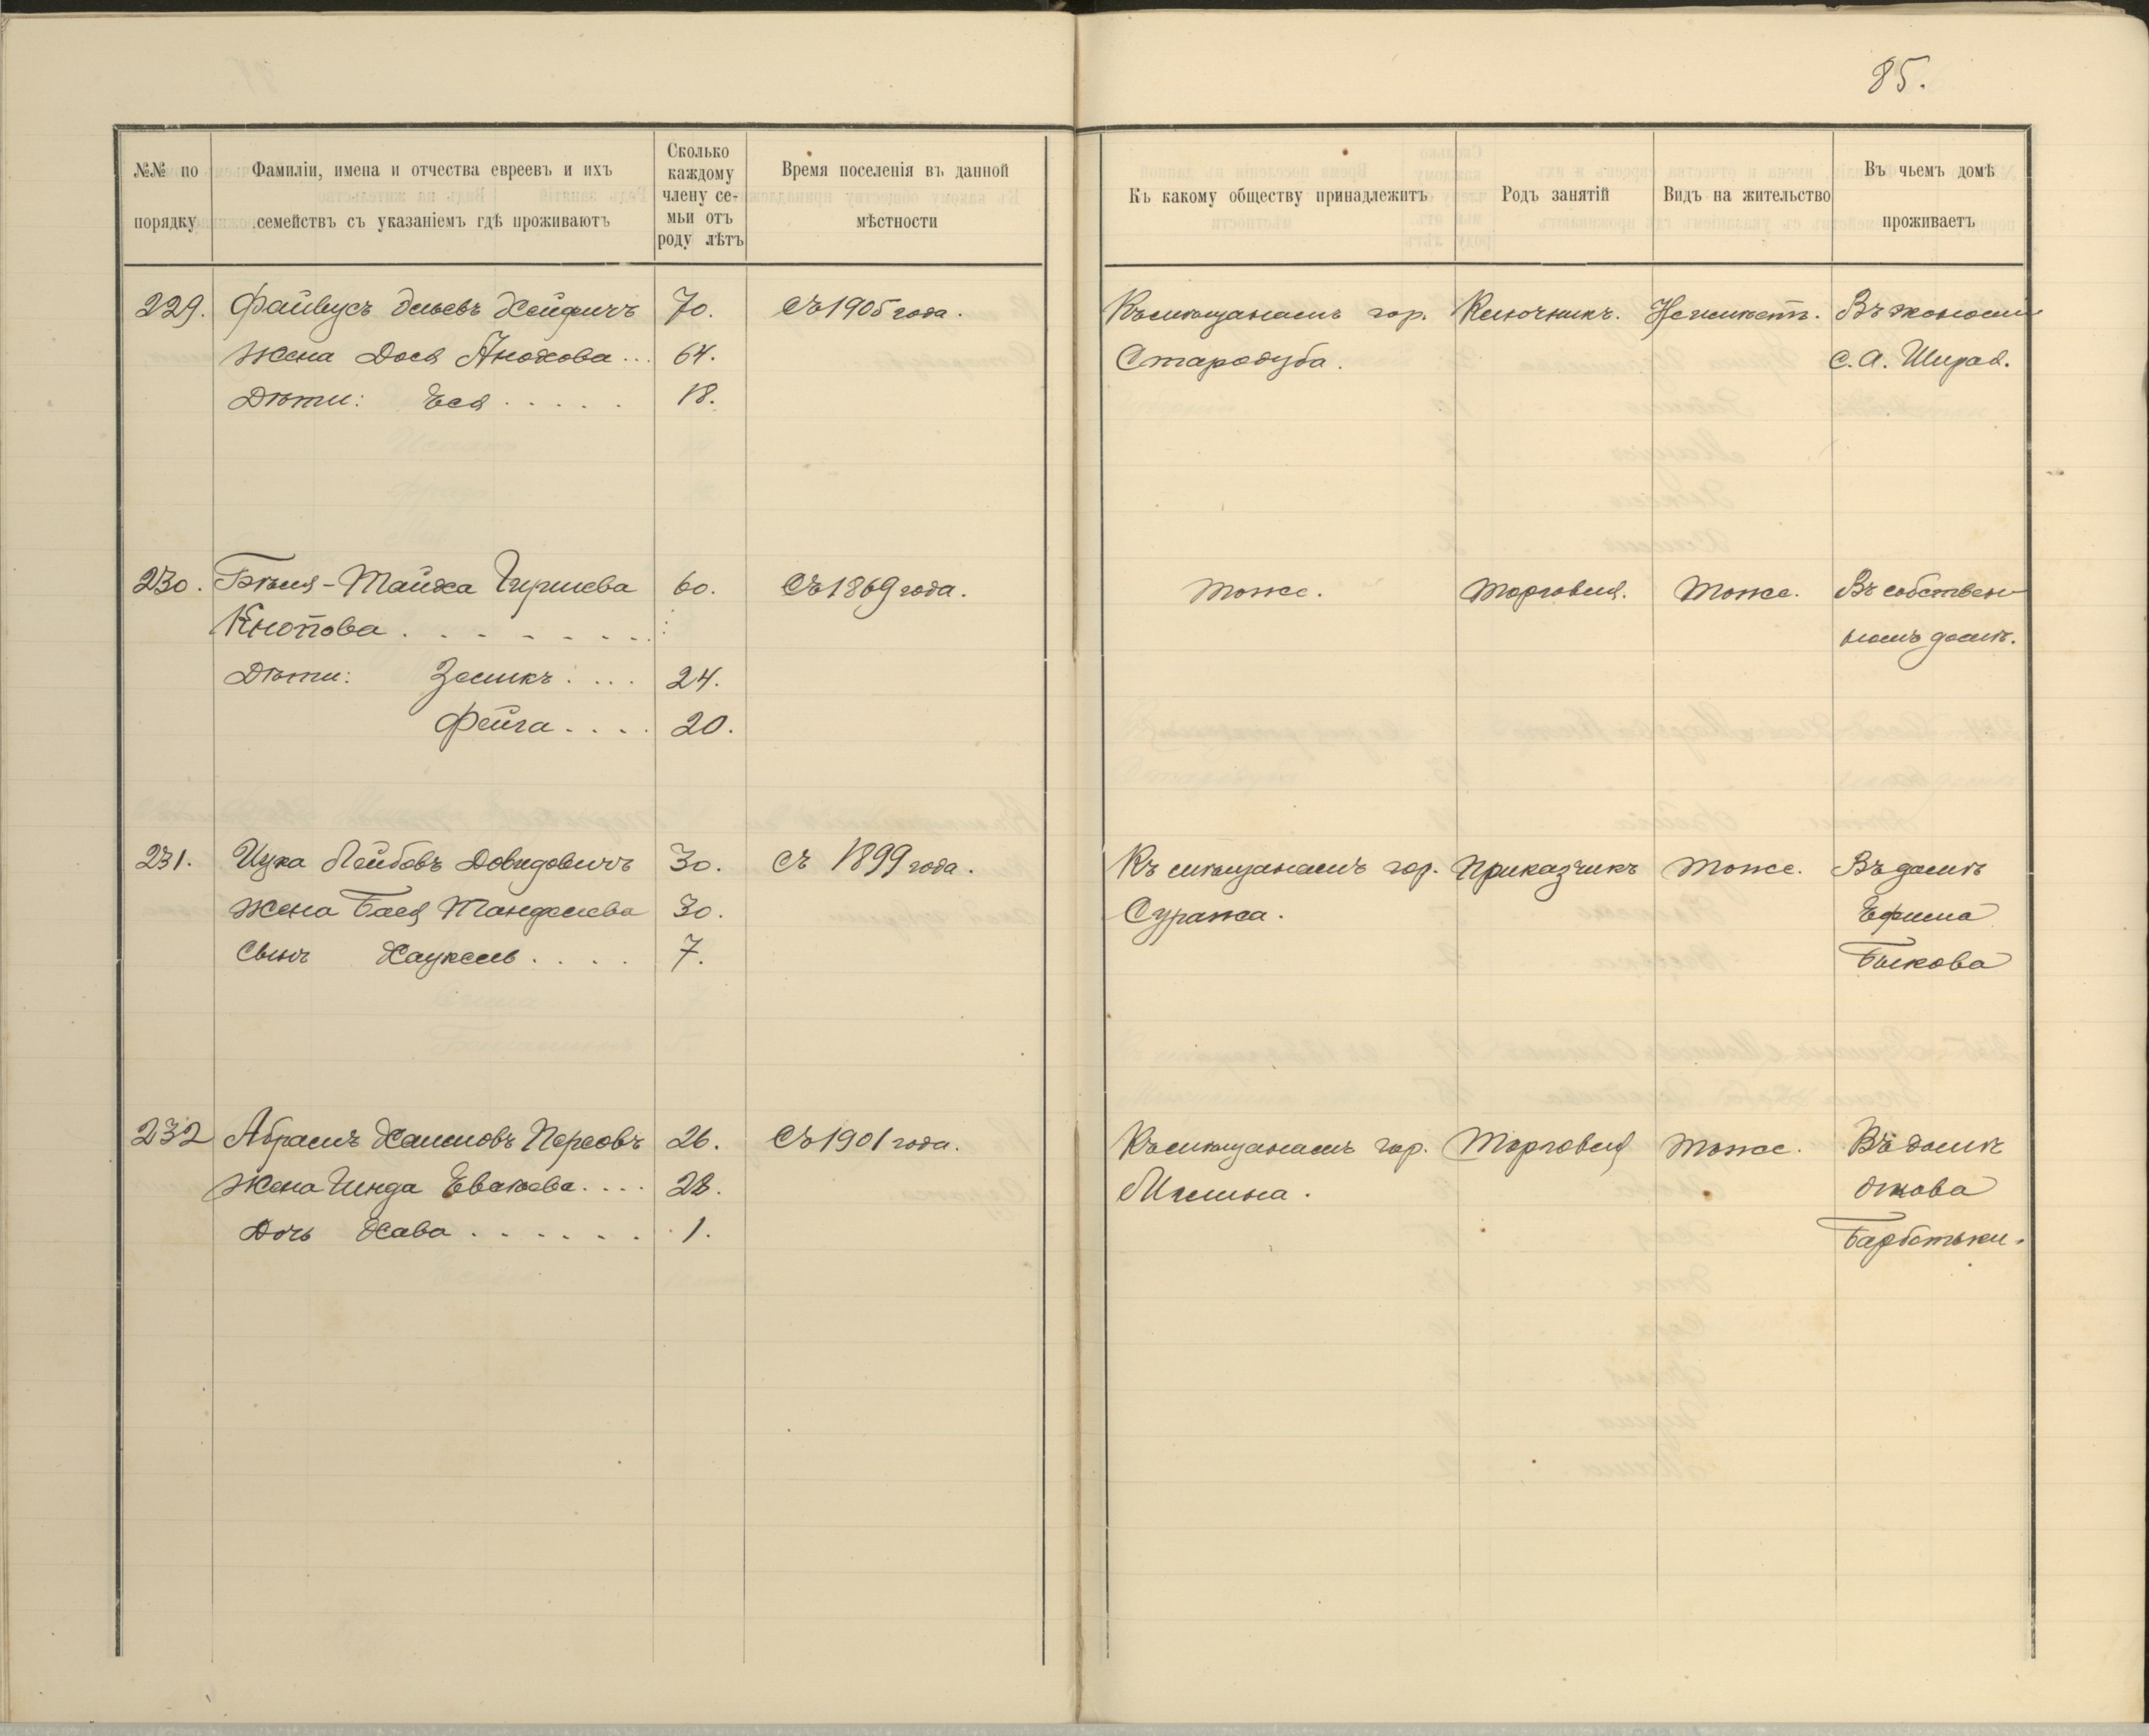 85.
№№ по
порядку
Фамиліи, имена и отчества евреевъ и ихъ
семействъ съ указаніемъ гдѣ проживаютъ
Сколько
каждому
члену се-
мьи отъ
роду лѣтъ
Время поселенія въ данной
мѣстности
Къ какому обществу принадлежитъ
Родъ занятій
Видъ на жительство
Въ чьемъ домѣ
проживаетъ
229. Файвусъ Хейфицъ 70. Съ 1905 года. Къ мѣщанамъ гор. Ключникъ. Въ экономіи
Жена Дося 64. Стародуба. С. А. Ширая.
Дѣти: Еся 18.
230. Гиршева 60. Съ 1869 года. Тоже. Торговля. Тоже. Въ собствен-
Кнопова номъ домѣ.
Дѣти: Зеликъ 24.
Фейга 20.
231. Ицка Лейбовъ Довидовичъ 30. Съ 1899 года. Къ мѣщанамъ гор. Приказчикъ Тоже. Въ домѣ
Жена Бася 30. Суража. Ефима
Сынъ 7. Быкова
232 Абрамъ Хаимовъ Персовъ 26. Съ 1901 года. Къ мѣщанамъ гор. Торговля Тоже. Въ домѣ
Жена Гинда 28. Мглина.
Дочь Хава 1.